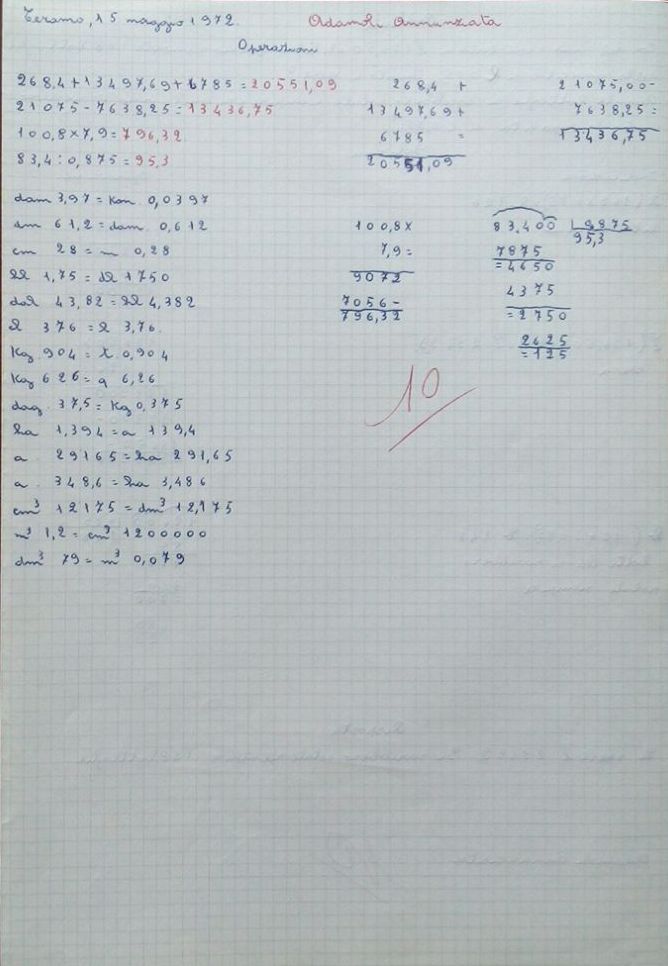 Teramo, 15 maggio 1972.
Adamoli Annunziata
Operazioni
268,4+13497,69+6785=20551,09
21075-7638,25=13436,75
100,8×7,9=796,32
83,4:0,875=95,3
268,4 +
13497,69+
6785 =
20551,09
21075,00-
7638,25=
13436,75
dam 3,97 = km 0,0397
dm 61,2 = dam 0,612
cm 28 = m 0,28
hl 1,75 = dl 1750
dal 43,82 = hl 4,382
l 376 = hl 3,76.
Kg 904 = t 0,904
Kg 626 = q 6,26
dag 37,5 = Kg 0,375
ha 1,394 = a 139,4
a 29165 = ha 291,65
a 348,6 = ha 3,486
cm³ 12175 = dm³ 12,175
m³ 1,2 = cm³ 1200000
dm³ 79 = m³ 0,079
100,8×
7,9=
9072
7056-
796,32
83,400 | 0,875
95,3
7875
=4650
4375
=2750
2625
=125
10